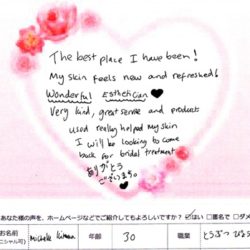 The best place I have been!
My skin feels new and refreshed!
Wonderful Esthetician ♥
Very kind, great service and products
used really helped my skin
I will be looking to come
back for bridal treatment
ありがとう
ございます。
あなた様の声を、ホームページなどでご紹介してもよろしいですか？ ☑はい □匿名で
お名前
ニシャル可)
Michelle
年齢
30
職業